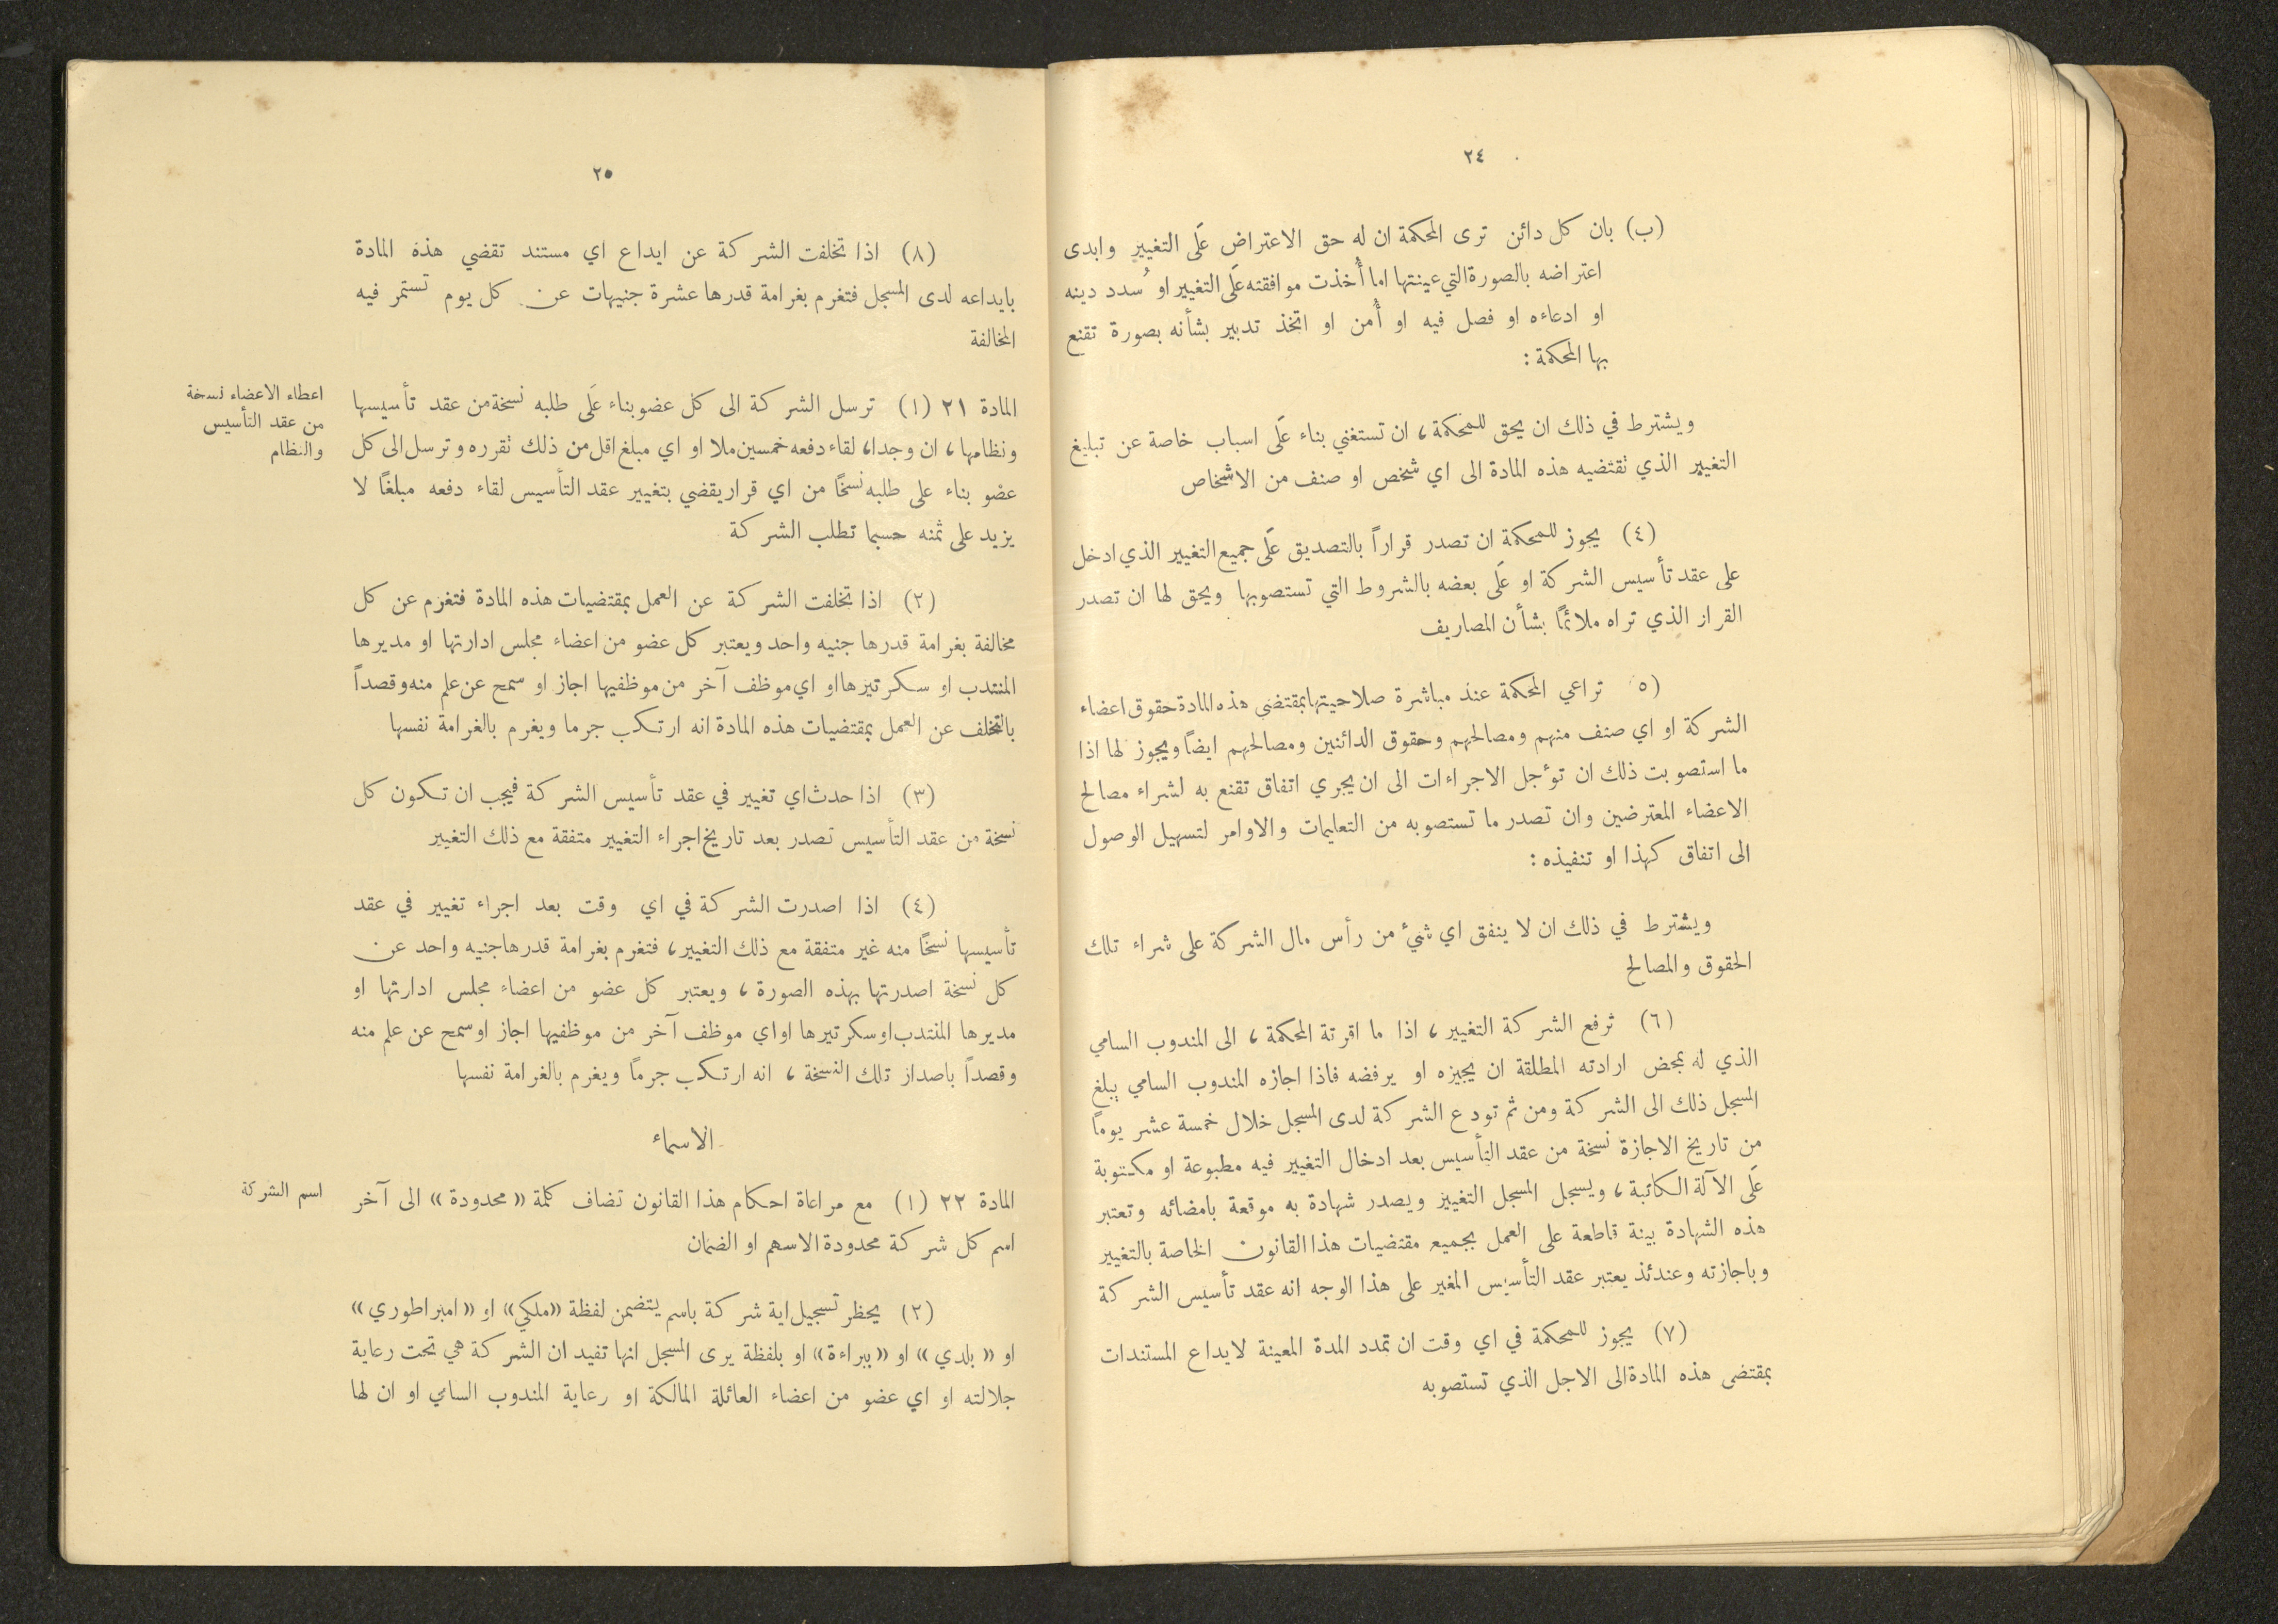 ٢٤
(ب) بان كل دائن ترى المحكمة ان له حق الاعتراض عَلَى التغيير وابدى
اعتراضه بالصورة التي عينتها اما أُخذت موافقته عَلَى التغيير او سُدد دينه
او ادعاءه او فصل فيه او أُمن او اتخذ تدبير بشأنه بصورة تقنع
بها المحكمة :
ويشترط في ذلك ان يحق للمحكمة ، ان تستغني بناء عَلَى اسباب خاصة عن تبليغ
التغيير الذي تقتضيه هذه المادة الى اي شخص او صنف من الاشخاص
(٤) يجوز للمحكمة ان تصدر قراراً بالتصديق عَلَى جميع التغيير الذي ادخل
على عقد تأسيس الشركة او عَلَى بعضه بالشروط التي تستصوبها ويحق لها ان تصدر
القرار الذي تراه ملائمًا بشأن المصاريف
(٥ تراعي المحكمة عند مباشرة صلاحيتها بمقتضى هذه المادة حقوق اعضاء
الشركة او اي صنف منهم ومصالحهم وحقوق الدائنين ومصالحهم ايضًا ويجوز لها اذا
ما استصوبت ذلك ان تؤجل الاجراءات الى ان يجري اتفاق تقنع به لشراء مصالح
الاعضاء المعترضين وان تصدر ما تستصوبه من التعليمات والاوامر لتسهيل الوصول
الى اتفاق كهذا او تنفيذه :
ويشترط في ذلك ان لا ينفق اي شيء من رأس مال الشركة على شراء تلك
الحقوق والمصالح
(٦) ترفع الشركة التغيير ، اذا ما اقرتة المحكمة ، الى المندوب السامي
الذي له بمحض ارادته المطلقة ان يجيزه او يرفضه فاذا اجازه المندوب السامي يبلغ
المسجل ذلك الى الشركة ومن ثم تودع الشركة لدى المسجل خلال خمسة عشر يومًا
من تاريخ الاجازة نسخة من عقد التأسيس بعد ادخال التغيير فيه مطبوعة او مكتوبة
عَلَى الآلة الكاتبة ، ويسجل المسجل التغيير ويصدر شهادة به موقعة بامضائه وتعتبر
هذه الشهادة بينة قاطعة على العمل بجميع مقتضيات هذا القانون الخاصة بالتغيير
وباجازته وعندئذ يعتبر عقد التأسيس المغير على هذا الوجه انه عقد تأسيس الشركة
(٧) يجوز للمحكمة في اي وقت ان تمدد المدة المعينة لايداع المستندات
بمقتضى هذه المادة الى الاجل الذي تستصوبه
٢٥
(٨) اذا تخلفت الشركة عن ايداع اي مستند تقضي هذه المادة
بايداعه لدى المسجل فتغرم بغرامة قدرها عشرة جنيهات عن كل يوم تستمر فيه
المخالفة
اعطاء الاعضاء نسخة
من عقد التأسيس
والنظام
المادة ٢١ (١) ترسل الشركة الى كل عضو بناء عَلَى طلبه نسخة من عقد تأسيسها
ونظامها ، ان وجدا ، لقاء دفعه خمسين ملا او اي مبلغ اقل من ذلك تقرره وترسل الى كل
عضو بناء على طلبه نسخًا من اي قرار يقضي بتغيير عقد التأسيس لقاء دفعه مبلغًا لا
يزيد على ثمنه حسبما تطلب الشركة
(٢) اذا تخلفت الشركة عن العمل بمقتضيات هذه المادة فتغرم عن كل
مخالفة بغرامة قدرها جنيه واحد ويعتبر كل عضو من اعضاء مجلس ادارتها او مديرها
المنتدب او سكرتيرها او اي موظف آخر من موظفيها اجاز او سمح عن علم منه وقصداً
بالتخلف عن العمل بمقتضيات هذه المادة انه ارتكب جرما ويغرم بالغرامة نفسها
(٣) اذا حدث اي تغيير في عقد تأسيس الشركة فيجب ان تكون كل
نسخة من عقد التأسيس تصدر بعد تاريخ اجراء التغيير متفقة مع ذلك التغيير
(٤) اذا اصدرت الشركة في اي وقت بعد اجراء تغيير في عقد
تأسيسها نسخًا منه غير متفقة مع ذلك التغيير ، فتغرم بغرامة قدرها جنيه واحد عن
كل نسخة اصدرتها بهذه الصورة ، ويعتبر كل عضو من اعضاء مجلس ادارتها او
مديرها المنتدب او سكرتيرها او اي موظف آخر من موظفيها اجاز او سمح عن علم منه
وقصداً باصدار تلك النسخة ، انه ارتكب جرمًا ويغرم بالغرامة نفسها
الاسماء
اسم الشركة
المادة ٢٢ (١) مع مراعاة احكام هذا القانون تضاف كلمة « محدودة » الى آخر
اسم كل شركة محدودة الاسهم او الضمان
(٢) يحظر تسجيل اية شركة باسم يتضمن لفظة «ملكي» او « امبراطوري »
او « بلدي » او « ببراءة » او بلفظة يرى المسجل انها تفيد ان الشركة هي تحت رعاية
جلالته او اي عضو من اعضاء العائلة المالكة او رعاية المندوب السامي او ان لها